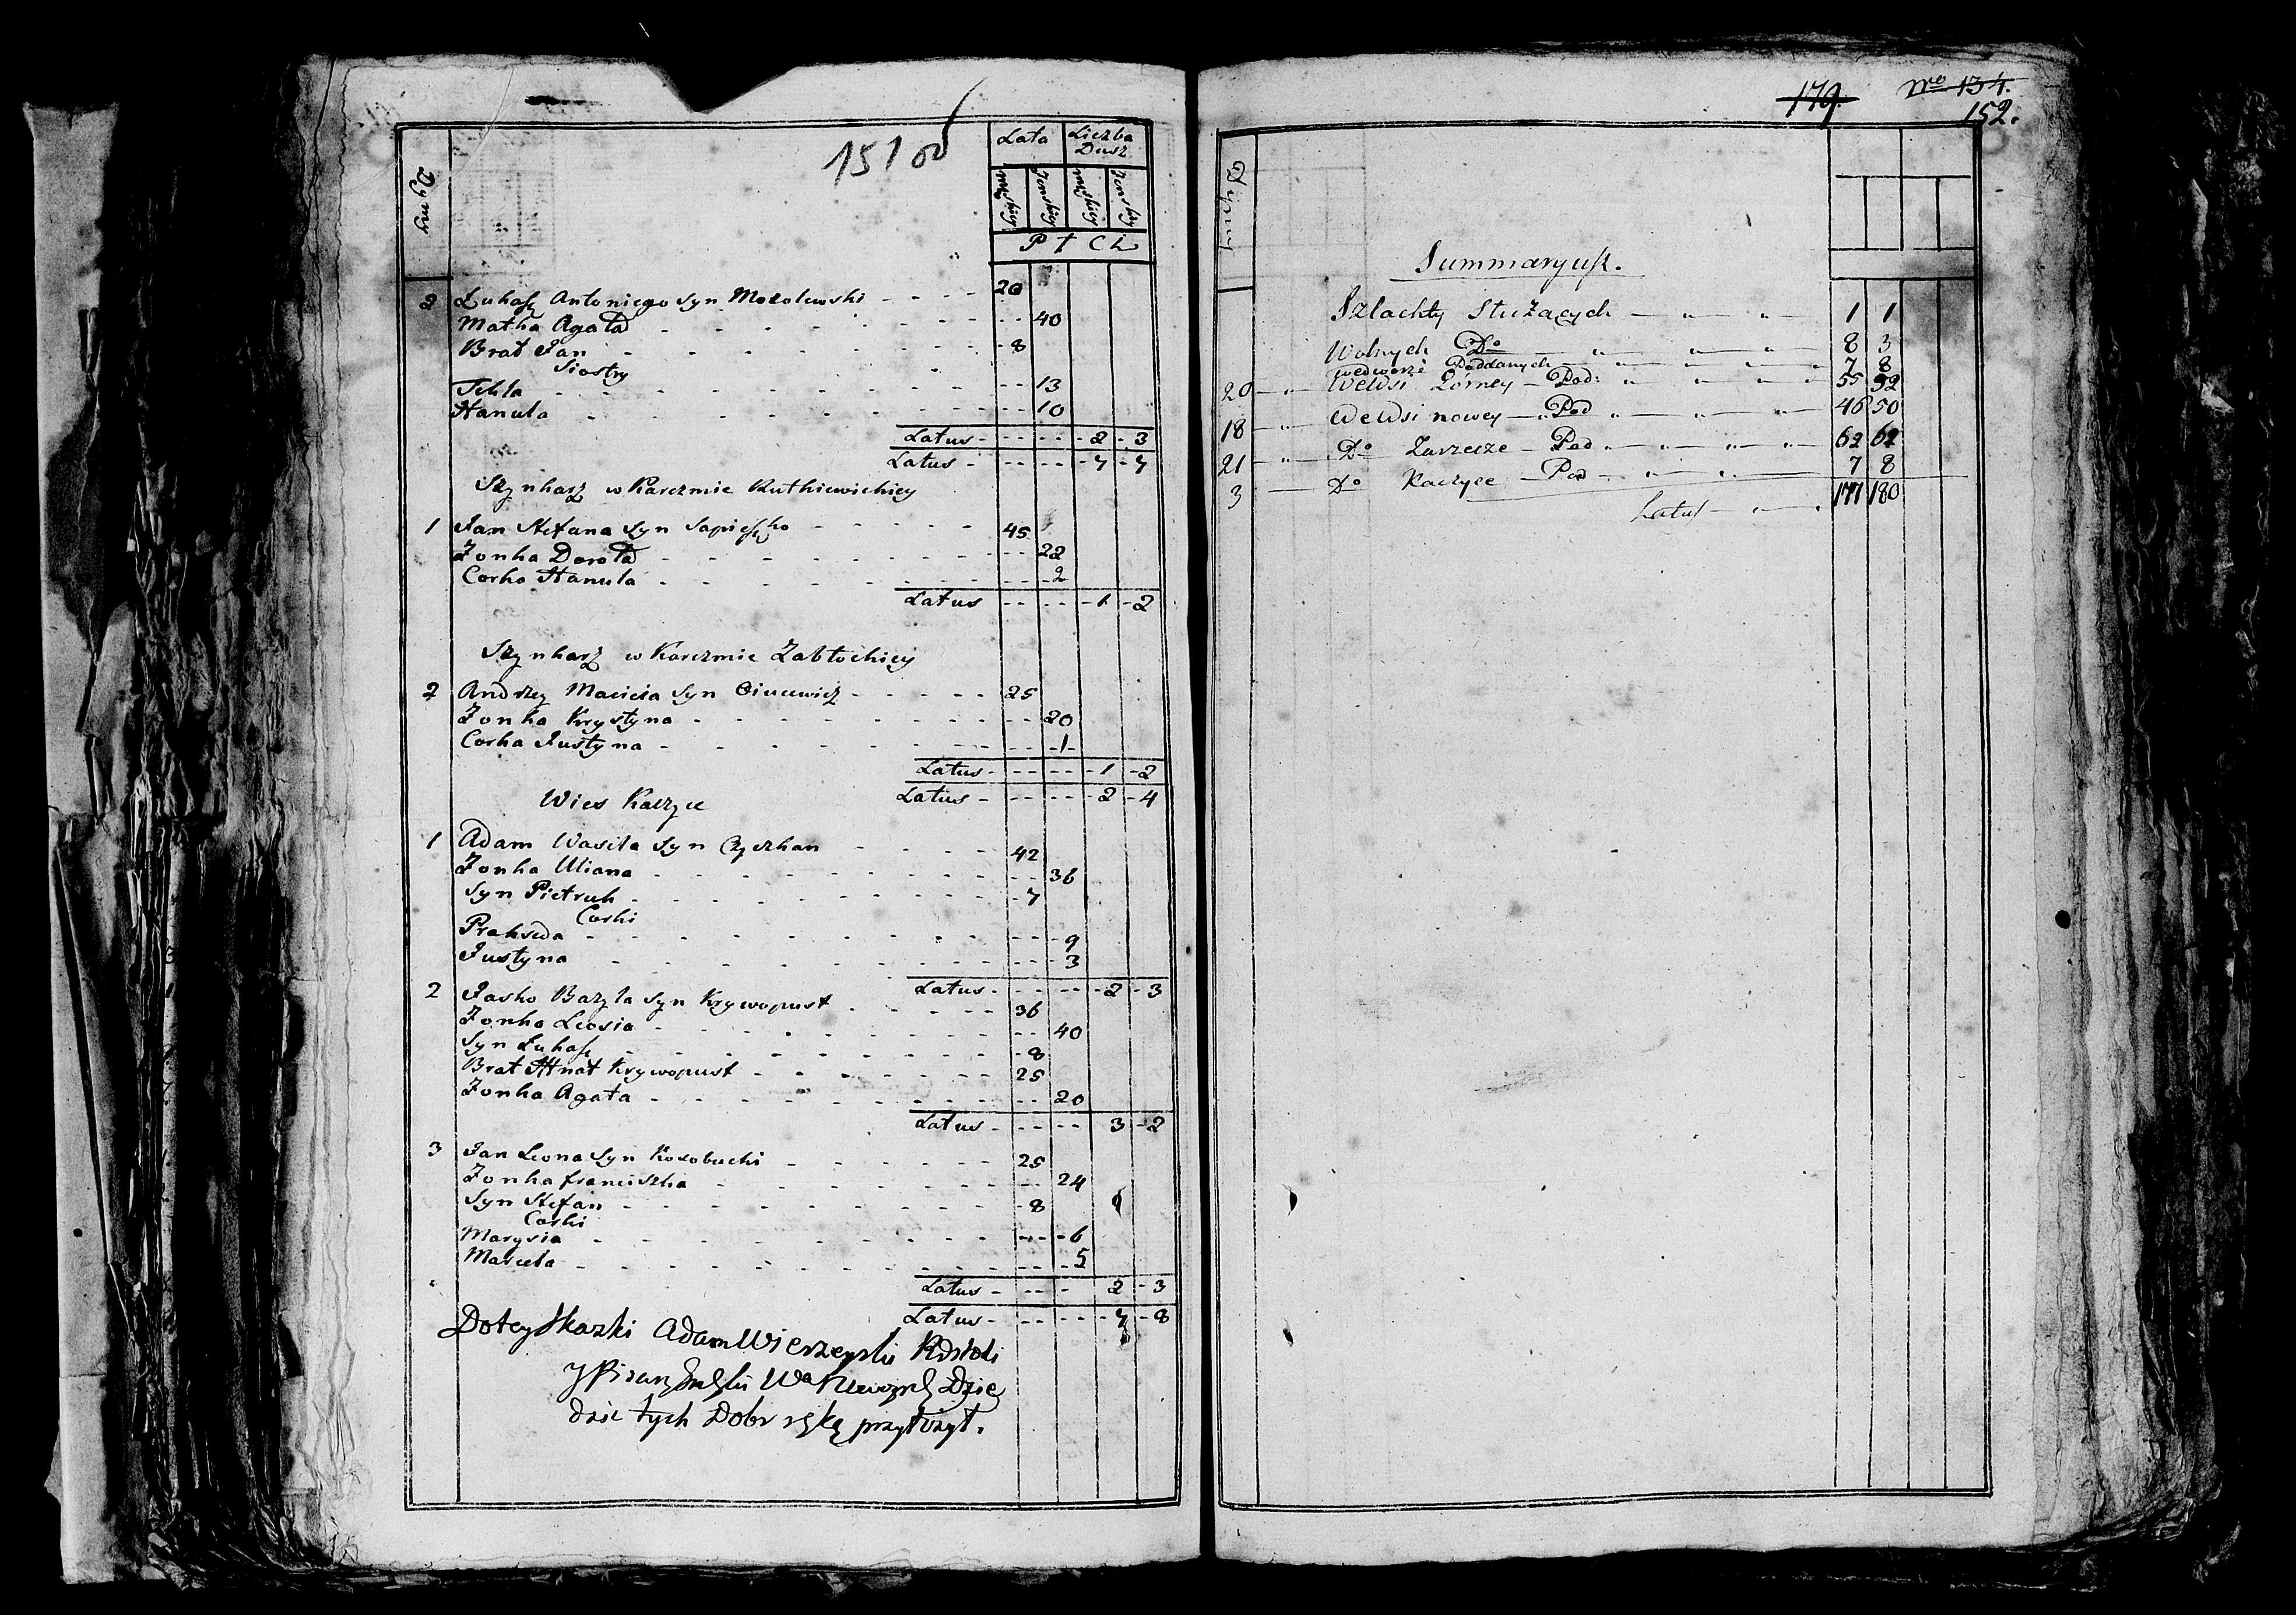 151 об
Dymy
Lata Liczba Dusz
męskiey żenskiey męskiey żenskiey
P ł C i
2 Łukasz Antoniego Syn Mozolewski - - - 20
Matka Agata - - - 40
Brat Jan - - - 8
Siostry
Tekla - - - 13
Hanula - - - 10
Latus - - - 2 - 3
Latus - - - 7 - 7
Szynkarz w Karczmie Rutkiewickiey
1 Jan Stefana Syn Sapieszko - - - 45
Żonka Dorota - - - 22
Corka Hanula - - - 2
Latus - - - 1 - 2
Szynkarz w Karczmie Zabłockiey
2 Andrzey Macieia Syn - - - 25
Żonka Krystyna - - - 20
Corka Justyna - - - 1
Latus - - - 1 - 2
Latus - - - 2 - 4
Wies Kaczyce
1 Adam Wasila Syn Czyszkan - - - 42
Żonka Uliana - - - 36
Syn Pietruk - - - 7
Corki
Prakseda - - - 9
Justyna - - - 3
Latus - - - 2 - 3
2 Jasko Bazyla Syn Krywopust - - - 36
Żonka Leosia - - - 40
Syn Łukasz - - - 8
Brat Hnat Krywopust - - - 25
Żonka Agata - - - 20
Latus - - - 3 - 2
3 Jan Leona Syn Kosobucki - - - 25
Żonka franciszka - - - 24
Syn Stefan - - - 8
Corki
Marysia - - - 6
Marcela - - - 5
Latus - - - 2 - 3
Latus - - - 7 - 8
Do tey Skazki Adam
dzic tych Dobr rękę przyłożył.
179 No 134.
152.
Dymy
Summaryusz.
Szlachty Służących 1 1
Wolnych Do 8 3
We dworze Poddanych 7 8
20 We Wsi Gorney Pod: 55 52
18 We Wsi nowey Pod 46 50
21 Do Zarzecze Pod 62 62
3 Do Kaczyce Pod 7 8
Latus 177 180